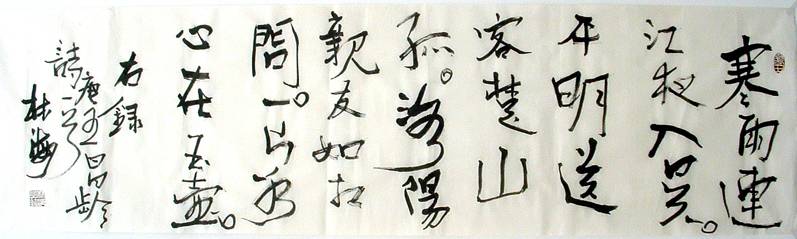 寒雨連
江夜入吴。
平明送
客楚山
孤。洛陽
親友如相
問。一片冰
心在玉壺。
右録
唐王昌齡
詩一首
林海